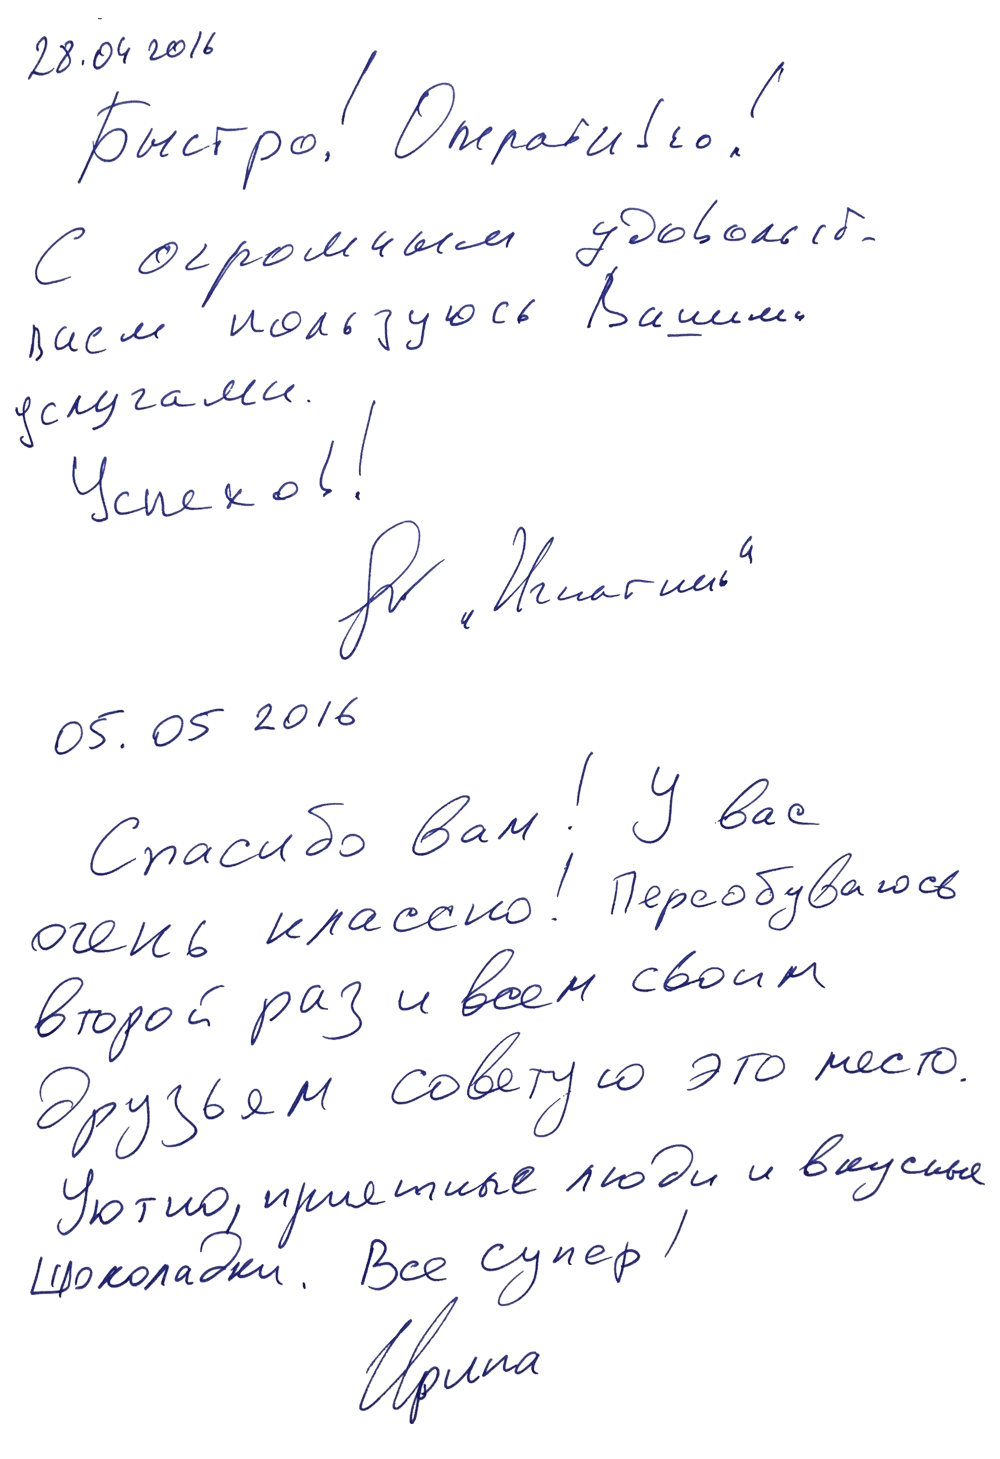 28.04 2016
Быстро! Оперативно!
С огромным удовольст-
вием пользуюсь Вашими
услугами.
Успехов!
05.05 2016
Спасибо вам! У вас
очень классно! Переобуваюсь
второй раз и всем своим
друзьям советую это место.
Уютно, приятные люди и вкусные
шоколадки. Все супер!
Ирина